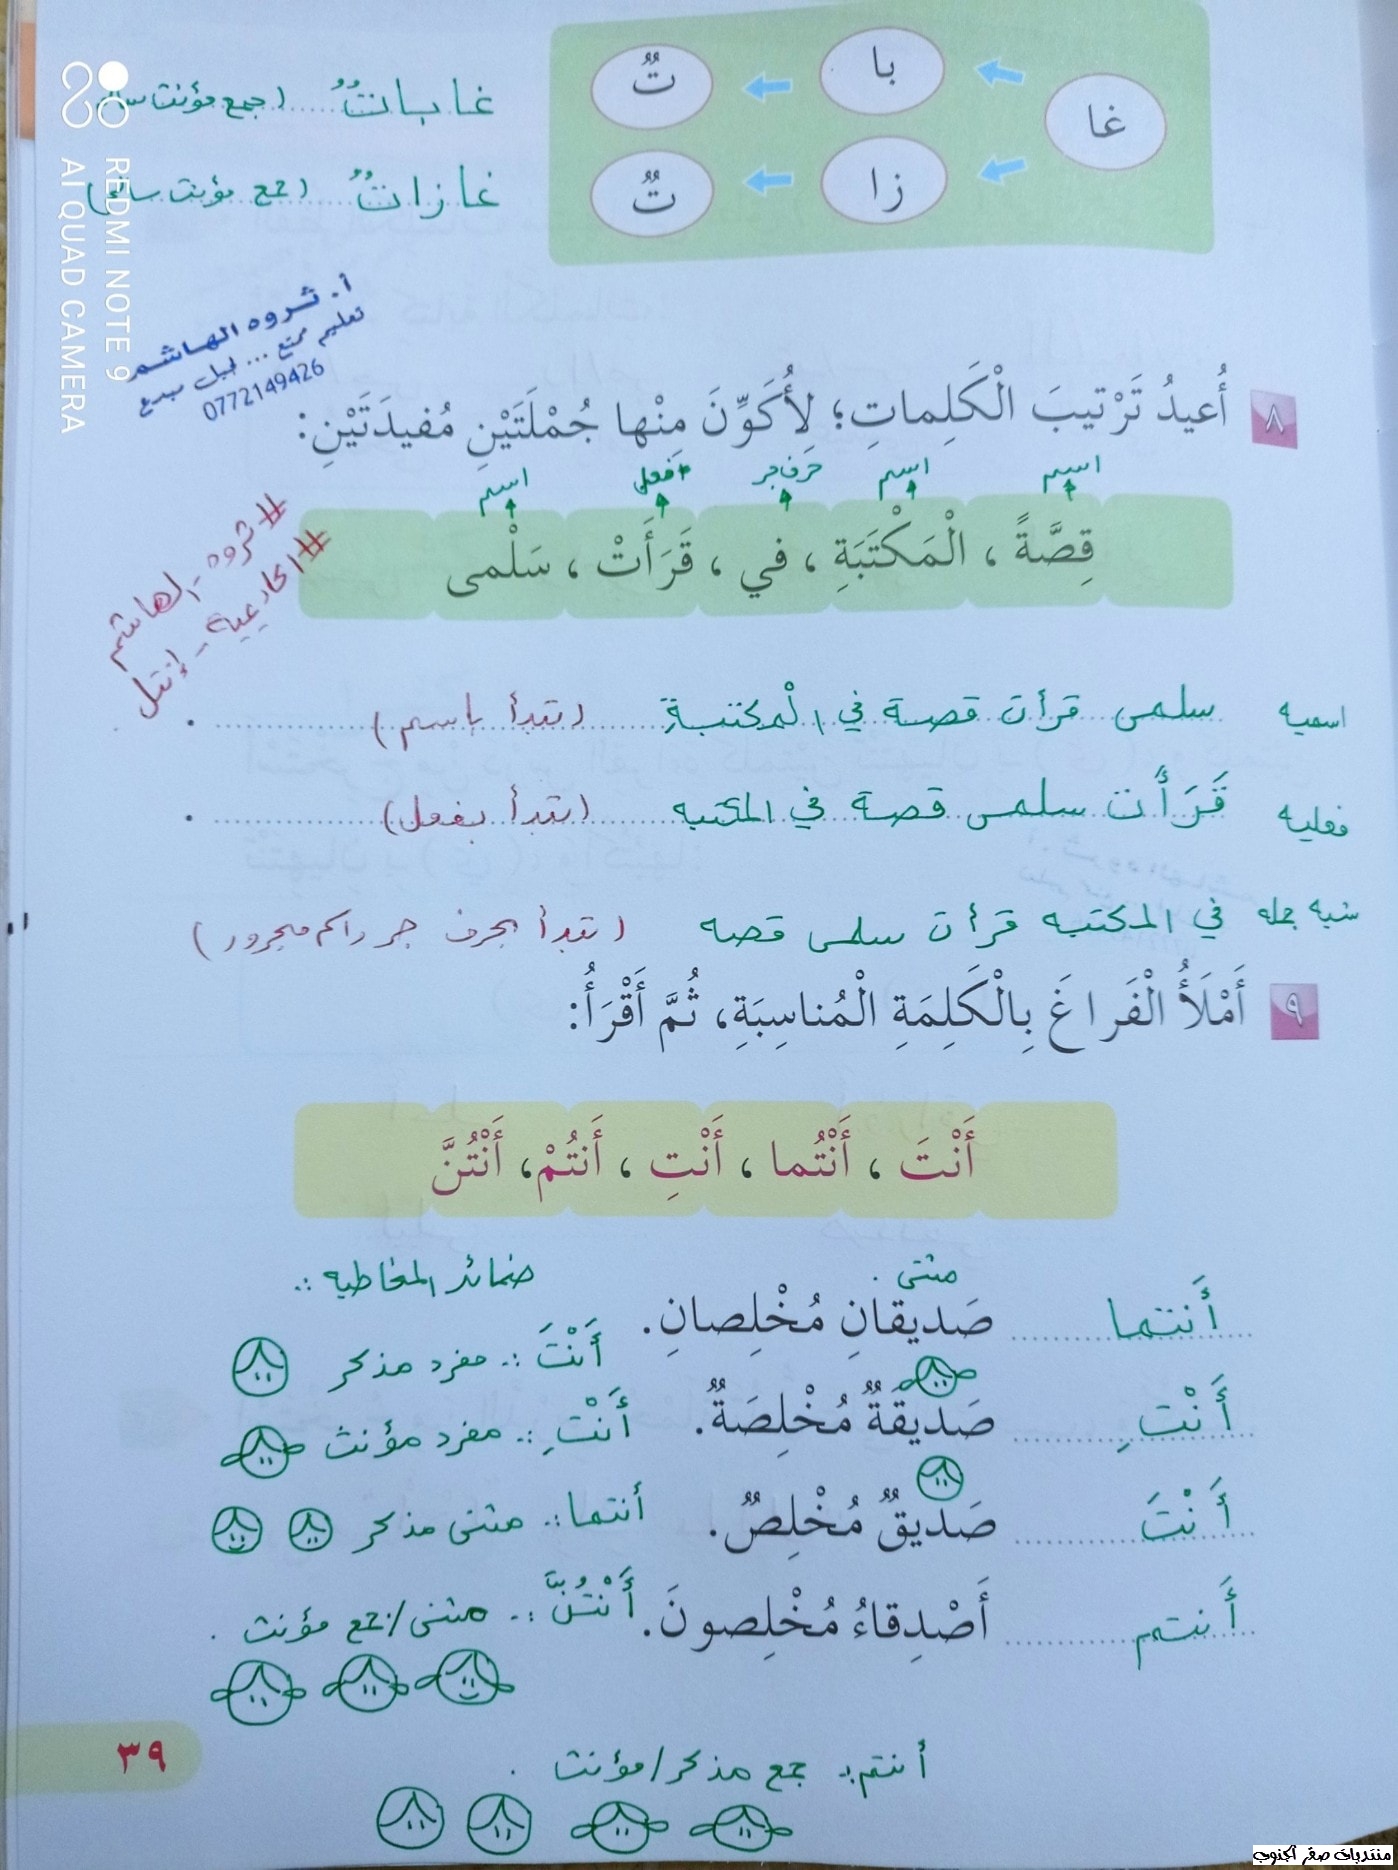 غا با تٌ
غاباتٌ (جمع مؤنث
زا تٌ
غازاتٌ (جمع مؤنث
REDMI NOTE 9
AI QUAD CAMERA
أ. ثروه الهاشم
تعليم ممتع ... لجيل مبدع
0772149426
٨ أُعيدُ تَرْتيبَ الْكَلِماتِ؛ لِأُكَوِّنَ مِنْها جُمْلَتَيْنِ مُفيدَتَيْنِ:
اسم اسم حرف جر فعل اسم
قِصَّةً ، الْمَكْتَبَةِ ، في ، قَرَأَتْ ، سَلْمى
#ثروه_الهاشم
اسميه سلمى قرأت قصة في الْمكتبة (تبدأ باسم) .
فعليه قَرَأَت سلمى قصة في المكتبه (تبدأ بفعل) .
شبه جمله في المكتبه قرأت سلمى قصه (تبدأ بحرف جر
٩ أَمْلَأُ الْفَراغَ بِالْكَلِمَةِ الْمُناسِبَةِ، ثُمَّ أَقْرَأُ:
أَنْتَ ، أَنْتُما ، أَنْتِ ، أَنتُمْ، أَنْتُنَّ
مثنى . ضمائر المخاطبه :.
أَنتما صَديقانِ مُخْلِصانِ.
أَنْتَ :. مفرد مذكر
أَنْتِ صَديقَةٌ مُخْلِصَةٌ.
أَنْتِ :. مفرد مؤنث
أَنْتَ صَديقٌ مُخْلِصٌ.
أنتما :. مثنى مذكر
أَنتم أَصْدِقاءُ مُخْلِصونَ.
أَنْتُنَّ :. مثنى/جمع مؤنث .
أنتم: جمع مذكر/مؤنث .
٣٩
منتديات صقر الجنوب